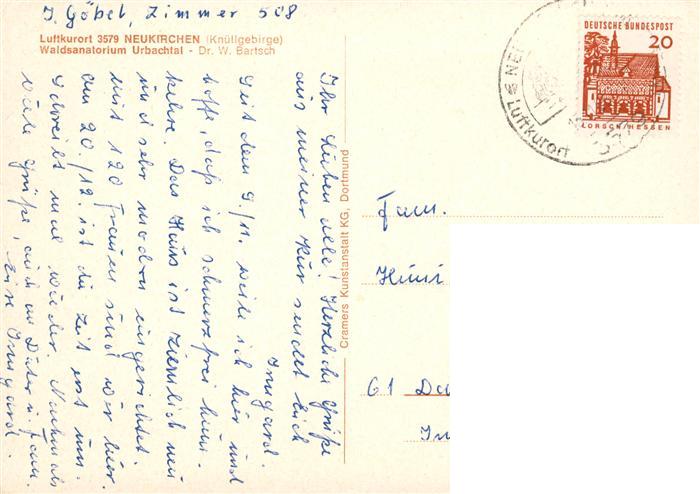 J. Göbel, Zimmer 508
Luftkurort 3579 NEUKIRCHEN (Knüllgebirge)
Waldsanatorium Urbachtal - Dr. W. Bartsch
Ihr Lieben alle! Herzliche Grüße
aus meiner Kur sendet Euch
Irmgard.
Seit dem 9./11. weile ich hier und
hoffe, daß ich schmerzfrei heim-
kehre. Das Haus ist ziemlich neu
und sehr modern eingerichtet.
Mit 120 Frauen sind wir hier.
am 20./12. ist die Zeit erst um.
Schreibt mal wieder. Nochmals
viele Grüße, auch an Dieter u. Fam.
Eure Irmgard.
Cramers Kunstanstalt KG, Dortmund
DEUTSCHE BUNDESPOST
20
LORSCH/HESSEN
NEU
Luftkurort
Fam.
Heini
61 Da